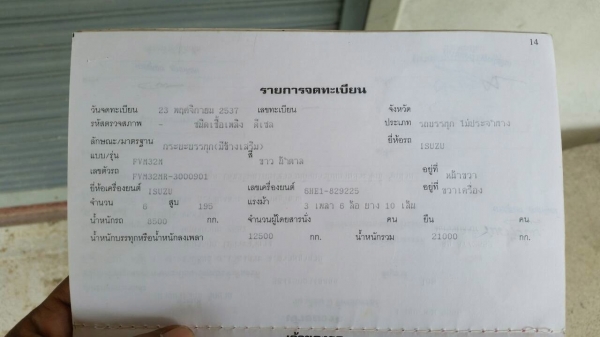 14
รายการจดทะเบียน
วันจดทะเบียน 23 พฤศจิกายน 2537 เลขทะเบียน จังหวัด
รหัสตรวจสภาพ - ชนิดเชื้อเพลิง ดีเซล ประเภท รถบรรทุก ไม่ประจำทาง
ลักษณะ/มาตรฐาน กระบะบรรทุก(มีข้างเสริม) ยี่ห้อรถ ISUZU
แบบ/รุ่น FVM32M สี ขาว
เลขตัวรถ FVM32MR-3000801 อยู่ที่ หน้าขวา
ยี่ห้อเครื่องยนต์ ISUZU เลขเครื่องยนต์ 6HE1-829225 อยู่ที่ ขวาเครื่อง
จำนวน 6 สูบ 195 แรงม้า 3 เพลา 6 ล้อ ยาง 10 เส้น
น้ำหนักรถ 8500 กก. จำนวนผู้โดยสารนั่ง คน ยืน คน
น้ำหนักบรรทุกหรือน้ำหนักลงเพลา 12500 กก. น้ำหนักรวม 21000 กก.